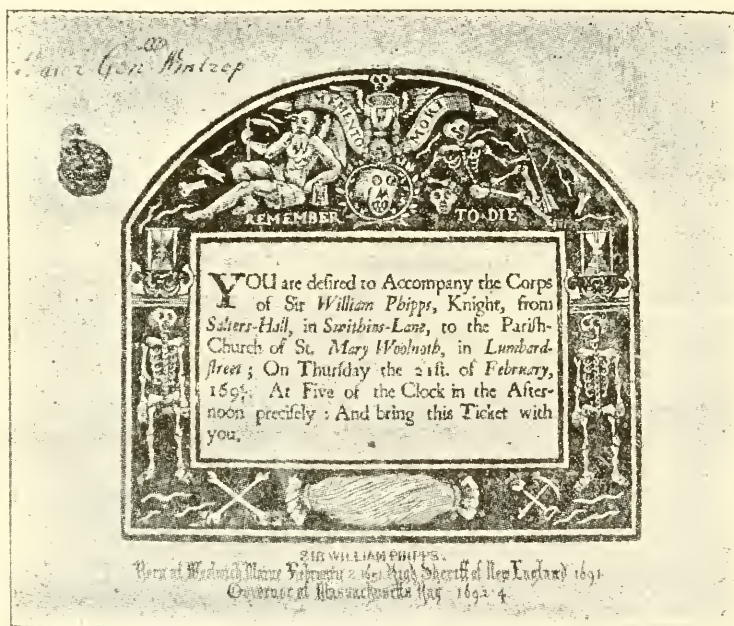 Gen Wintrop
MEMENTO MORI
REMEMBER TO DIE
YOU are desired to Accompany the Corps
of Sir William Phipps, Knight, from
Salters-Hall, in Swithins-Lane, to the Parish-
Church of St. Mary Woolnoth, in Lumbard-
street; On Thursday the 21st. of February,
At Five of the Clock in the After-
noon precisely: And bring this Ticket with
you.
SIR WILLIAM PHIPPS.
Born at Maine February 2. High Sheriff of New England 1691.
Governor of Massachusetts Bay 1692-4.